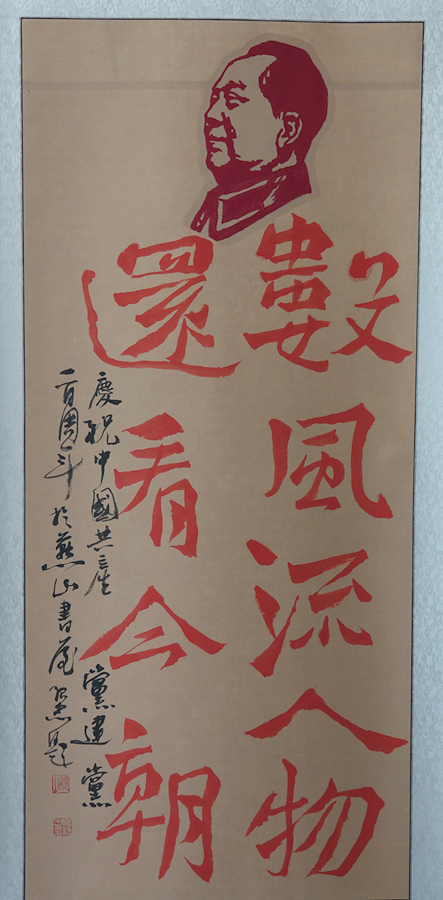 數風流人物
還看今朝
慶祝中國共產黨建黨
百周年於燕山書屋
題